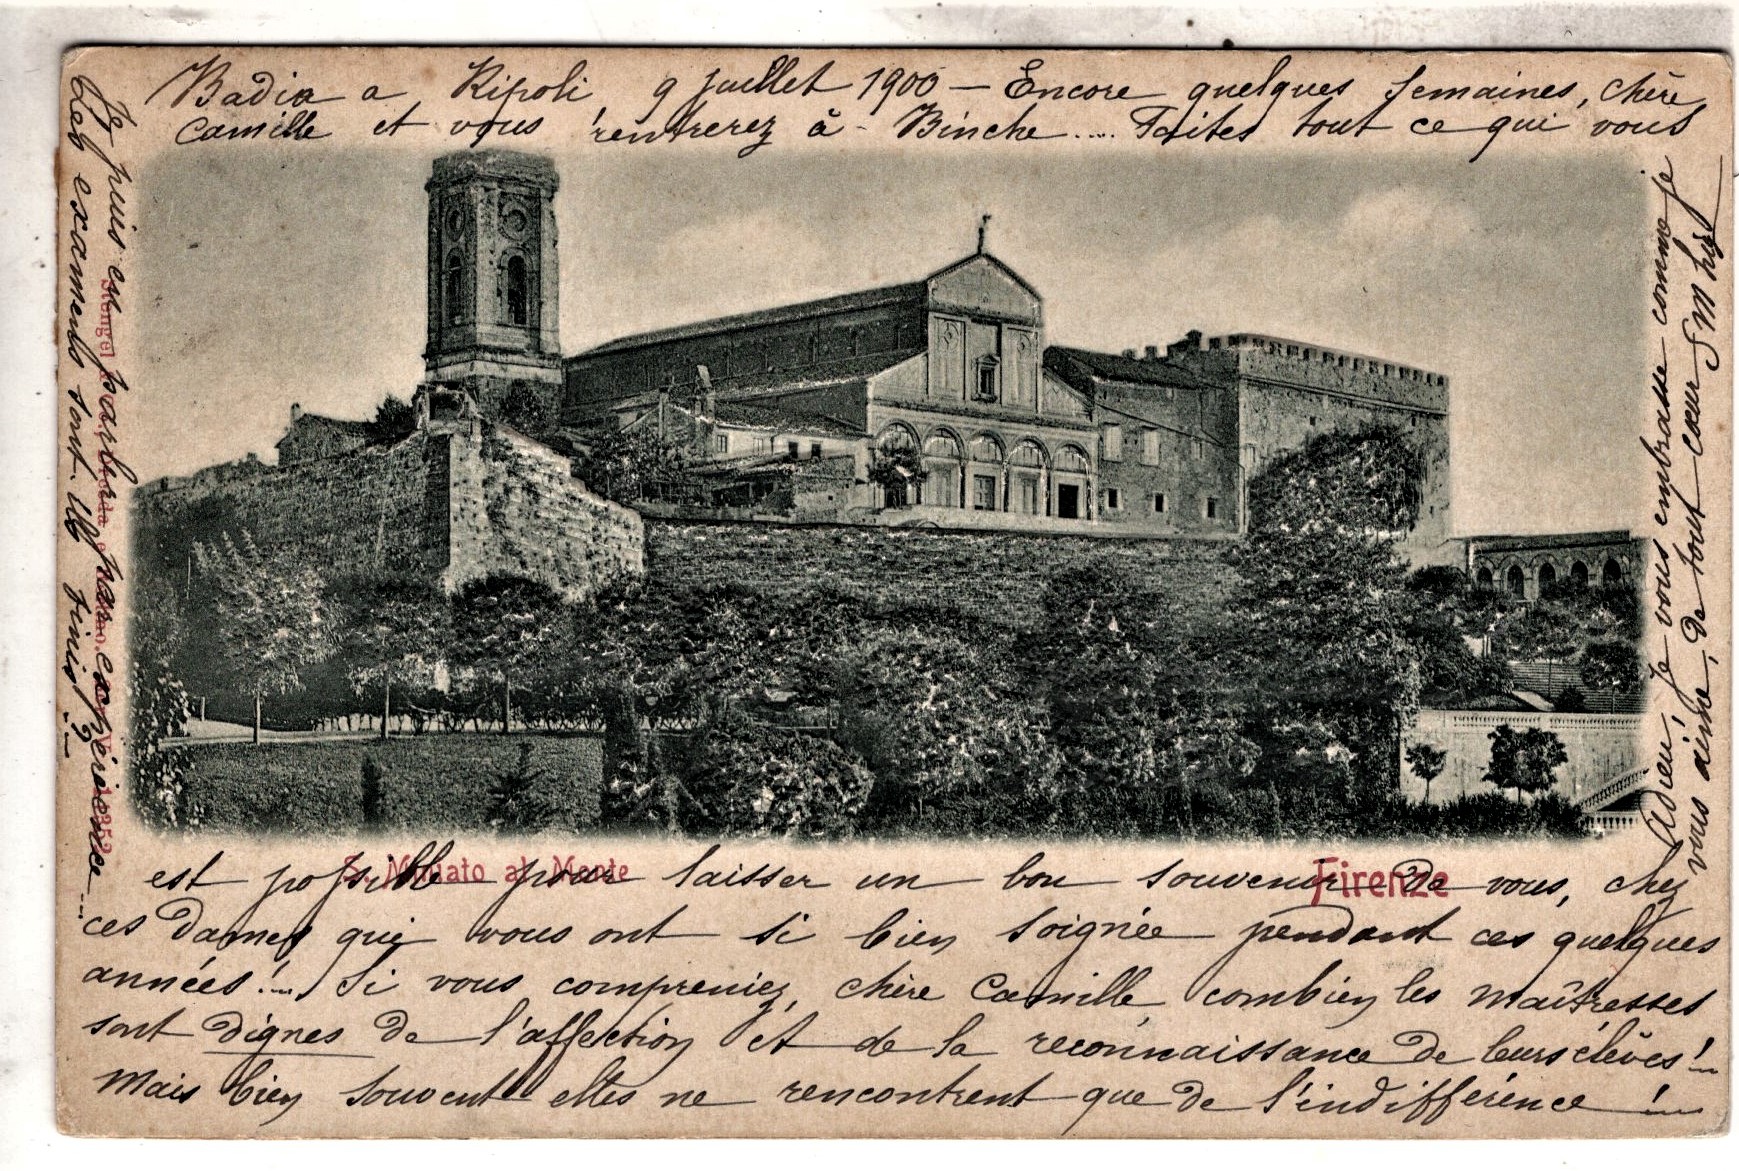 Badia a Ripoli, 9 juillet 1900 — Encore quelques semaines, chère
Camille et vous rentrerez à Binche.... Faites tout ce qui vous
est possible pour laisser un bon souvenir de vous, chez
ces Dames qui vous ont si bien soignée pendant ces quelques
années!... Si vous compreniez, chère Camille, combien les maîtresses
sont dignes de l'affection et de la reconnaissance de leurs élèves!...
Mais bien souvent elles ne rencontrent que de l'indifférence!...
Je puis en parler par expérience...
Les examens sont-ils finis?
Adieu, je vous embrasse comme je
vous aime, de tout cœur
S. Miniato al Monte
Firenze
Stengel